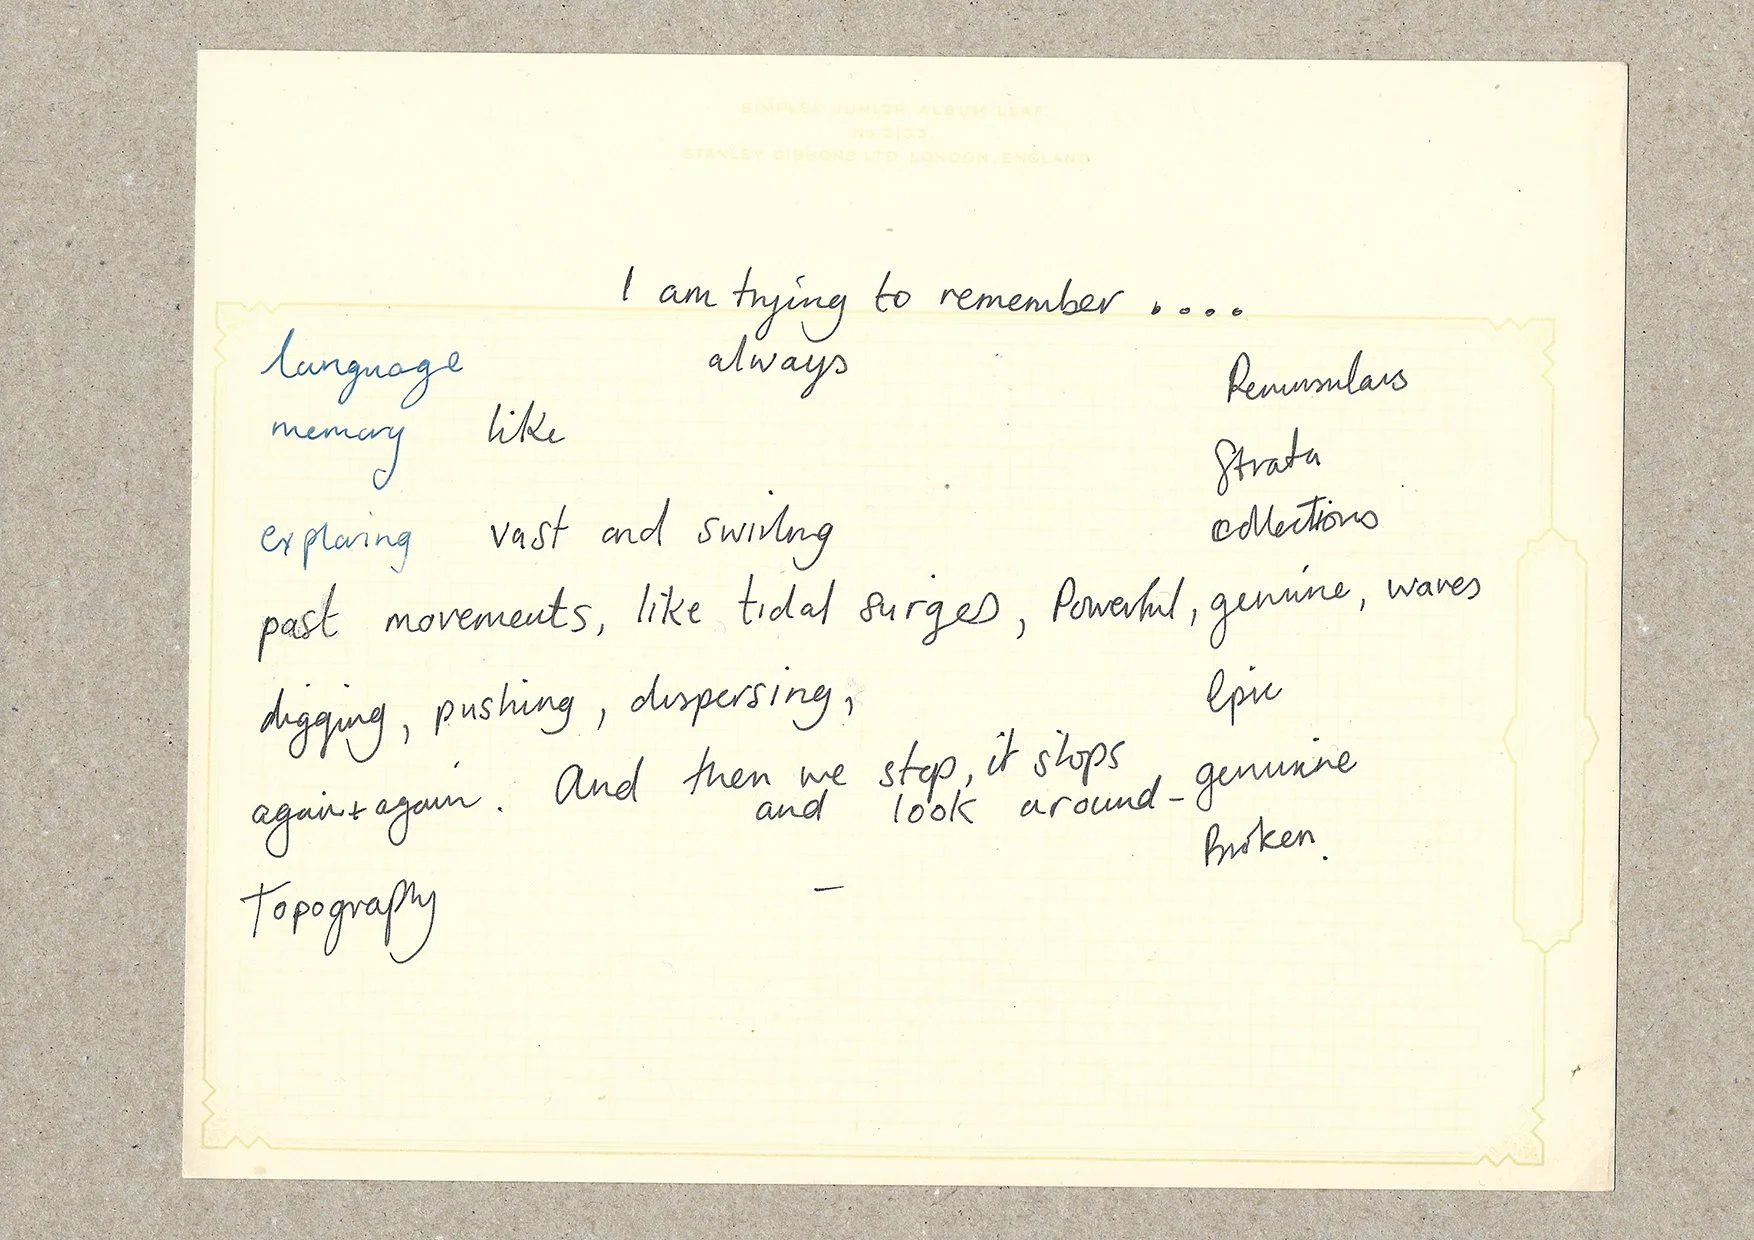 SIMPLEX JUNIOR ALBUM LEAF
STANLEY GIBBONS LTD LONDON, ENGLAND
I am trying to remember ....
language always
memory like Strata
exploring vast and swirlng collections
past movements, like tidal surges, Powerful, genuine, waves
digging, pushing, dispersing, Epic
again + again. And then we stop, it stops genuine
and look around -
Broken.
Topography -